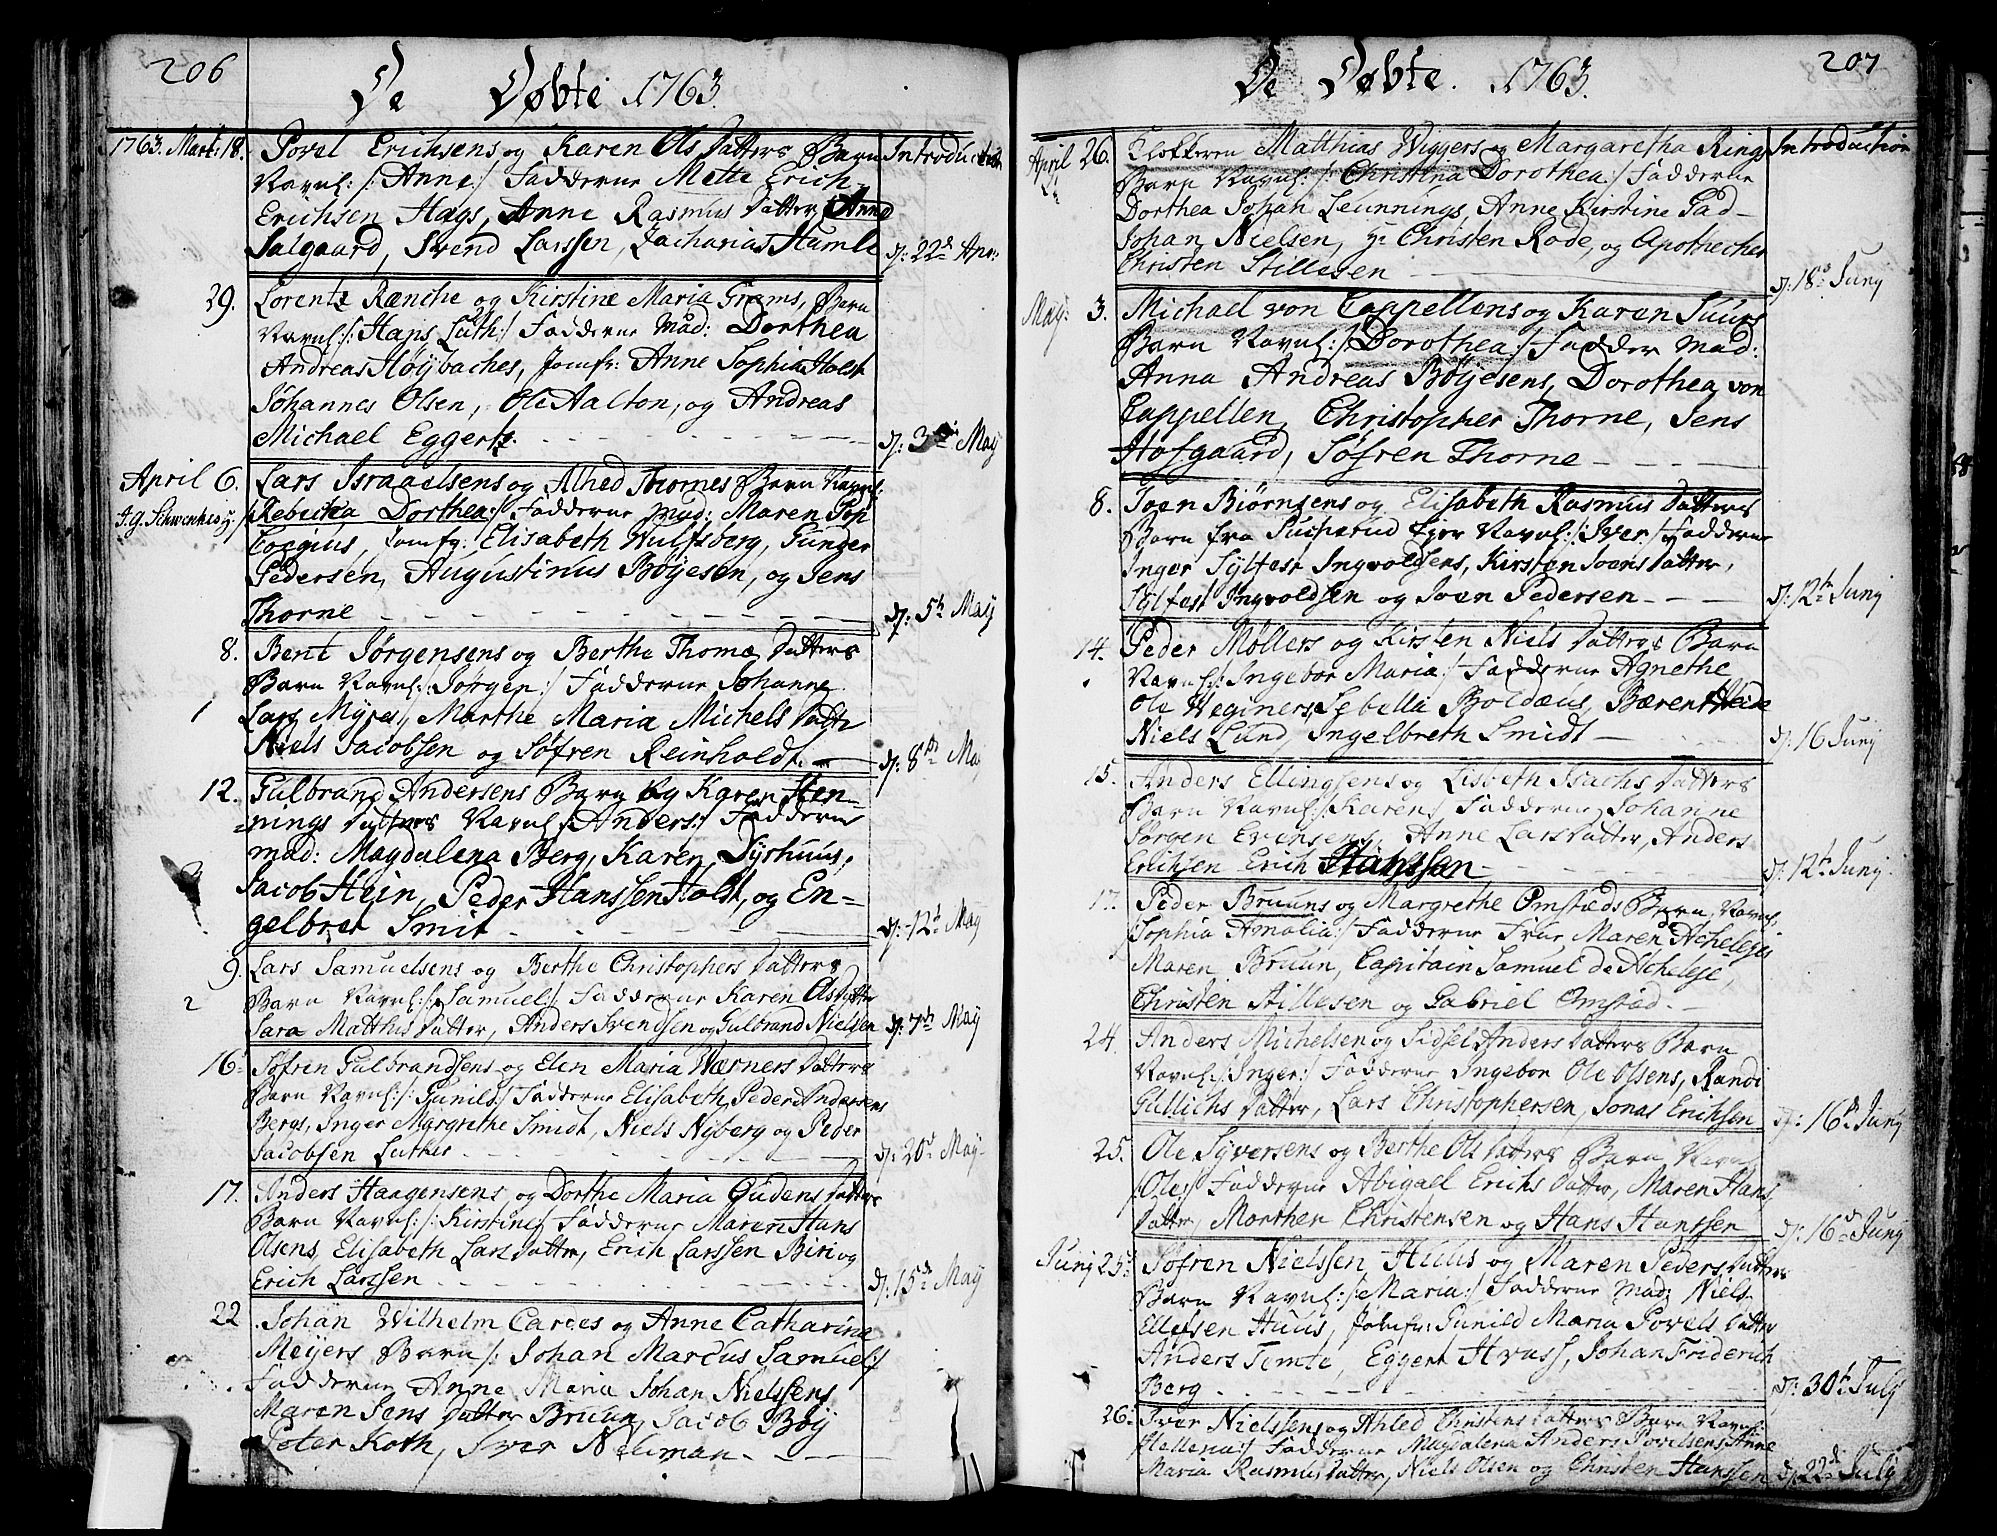 206
De Døbte 1763.
1763. Mart: 18. Povel Erichsens og Karen Ols Datters Barn Introduction
Navnl: /: Anne :/ Fadderne Mette Erich
Erichsen Hags, Anne Rasmus Datter, Anne
Salgaard, Svend Larssen, Zacharias Humle d: 22de Apr:
29. Lorentz Rænche og Kirstine Maria Grams, Barn
Navnl: /: Hans Luth :/ Fadderne Mad: Dorthea
Andreas Høybaches, Jomfr: Anne Sophia Holst
Johannes Olsen, Ole Aalton, og Andreas
Michael Eggertz. d: 3die May
April 6. Lars Israelsens og Alhed Thornes Barn Navnl:
J.G. Schwenkesøy. /: Rebecka Dorthea :/ Fadderne Mad: Maren Pop
Coccius, Jomfr: Elisabeth Wulfsberg, Gunder
Pedersen, Augustinus Bøyesen, og Jens
Thorne d: 5te May
8. Bent Jørgensens og Berthe Thomæ Datters
Barn Navnl: /: Jørgen :/ Fadderne Johanne
1 Lars Myres, Marthe Maria Michels Datter
Niels Jacobsen og Søfren Reinholdt. d: 8de May
12. Gulbrand Andersens Barn og Karen Hen-
=nings Datters Navnl /: Anders :/ Fadderne
Mad: Magdalena Berg, Karen Syrhuus,
Jacob Hein, Peder Hanssen Holst, og En-
gelbret Smit. d: 12te May
9. Lars Samuelsens og Berthe Christophers Datters
2 Barn Navnl: /: Samuel :/ Fadderne Karen Ols Datter
Sara Matthis Datter, Anders Svendsen og Gulbrand Nielsen d: 7de May
16. Søfren Gulbrandsens og Elen Maria Wærners Datters
Barn Navnl: /: Gunild :/ Fadderne Elisabeth Peder Andersens
Bergs, Inger Margrethe Smidt, Niels Nyberg og Peder
Jacobsen Luther d: 20de May
17. Anders Haagensens og Dorthe Maria Gudens Datters
Barn Navnl: /: Kirstine :/ Fadderne Maren Hans
Olsens, Elisabeth Lars Datter, Erich Larssen Biri og
Erich Larssen d: 15de May
22 Johan Wilhelm Cardes og Anne Catharine
Meyers Barn /: Johan Marcus Samuel :/
Fadderne Anne Maria Johan Nielssens
Maren Jens Datter Bruun, Jacob Bøy
Peter Koth, Iver Neuman.
207
De Døbte. 1763.
April 26. Klokkeren Matthias Wiggers og Margaretha Rings Introduction
Barn Navnl: /: Christina Dorothea :/ Fadderne
Dorthea Johan Leunnings, Anne Kirstine Gad
Johan Nielsen, Hr Christen Rode, og Apothecher
Christen Stillesen d: 18de Juny
May: 3. Michael von Cappellens og Karen Juurs
Barn Navnl: /: Dorothea :/ Fadder Mad:
Anna Andreas Bøyesens, Dorothea von
Cappellen, Christopher Thorne, Jens
Hofgaard, Søfren Thorne
8. Joen Biørnsens og Elisabeth Rasmus Datters
Barn fra Navnl: /: Iver :/ Fadderne
Inger Sylfest Ingvoldsens, Kirsten Joens Datter,
Sylfest Ingvoldsen og Joen Pedersen d: 12te Juny
14. Peder Møllers og Kirsten Niels Datters Barn
Navnl: /: Ingebor Maria :/ Fadderne Agnethe
Ole Wegners, Sebella Boldæus, Bærent Heie
Niels Lund, Ingelbreth Smidt d: 16 Juny
15. Anders Ellingsens og Lisbeth Isachs Datters
Barn Navnl: /: Karen :/ Fadderne Johanne
Jørgen Evensens, Anne Lars Datter, Anders
Erichsen Erich Hanssen d: 12te Juny
17. Peder Bruuns og Margrethe Omstads Barn Navnl:
/: Sophia Amalia :/ Fadderne Frue Maren Acheleje
Maren Bruun, Capitain Samuel de Acheleje,
Christen Stillesen og Gabriel Omstad.
24. Anders Michelsen og Sidsel Anders Datters Barn
Navnl: /: Inger :/ Fadderne Ingebor Ole Olsens, Randi
Gullichs Datter, Lars Christophersen, Jonas Erichsen d: 16de Juny
25. Ole Syversens og Berthe Ols Datters Barn Navnl
/: Ole :/ Fadderne Abigael Erichs Datter, Maren Hans
Datter, Morthen Christensen og Hans Hanssen d: 16de Juny
Juny 25. Søfren Nielssen Huus og Maren Peders Datters
Barn Navnl: /: Maria :/ Fadderne Mad: Niels
Ellefsen Huus, Jomfr: Gunild Maria Povels Datter
Anders Temte, Eggert Hvass, Johan Friderich
Berg d: 30te July
26. Iver Nielssens og Ahled Christens Datters Barn Navnl:
/: Hellena :/ Fadderne Magdalena Anders Povelsens, Anne
Maria Rasmus Datter, Niels Olsen og Christen Hanssen d: 22de July